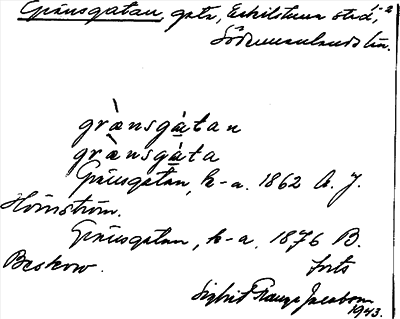 Gränsgatan, gata, Eskilstuna stad,
Södermanlands län.
grænsgatan
grænsgata
Gränsgatan, k-a. 1862 A. J.
Holmström.
Gränsgatan, k-a. 1876 B.
Beskow. forts
Sigrid Range Jacobson
1943.